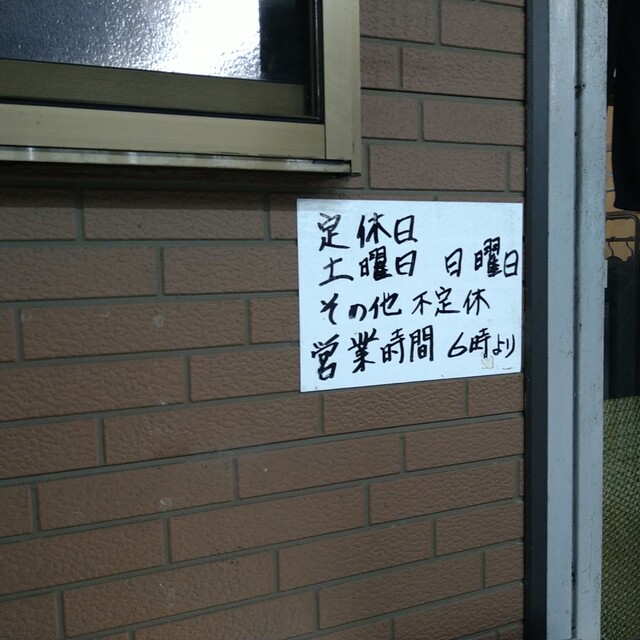 定休日
土曜日 日曜日
その他 不定休
営業時間 6時より